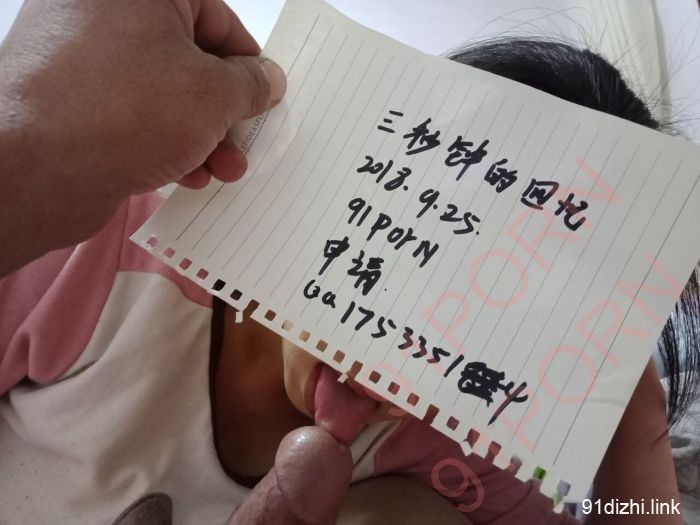 三秒钟的回忆
2018.9.25.
91PORN
申请.
91PORN
91PORN
91dizhi.link